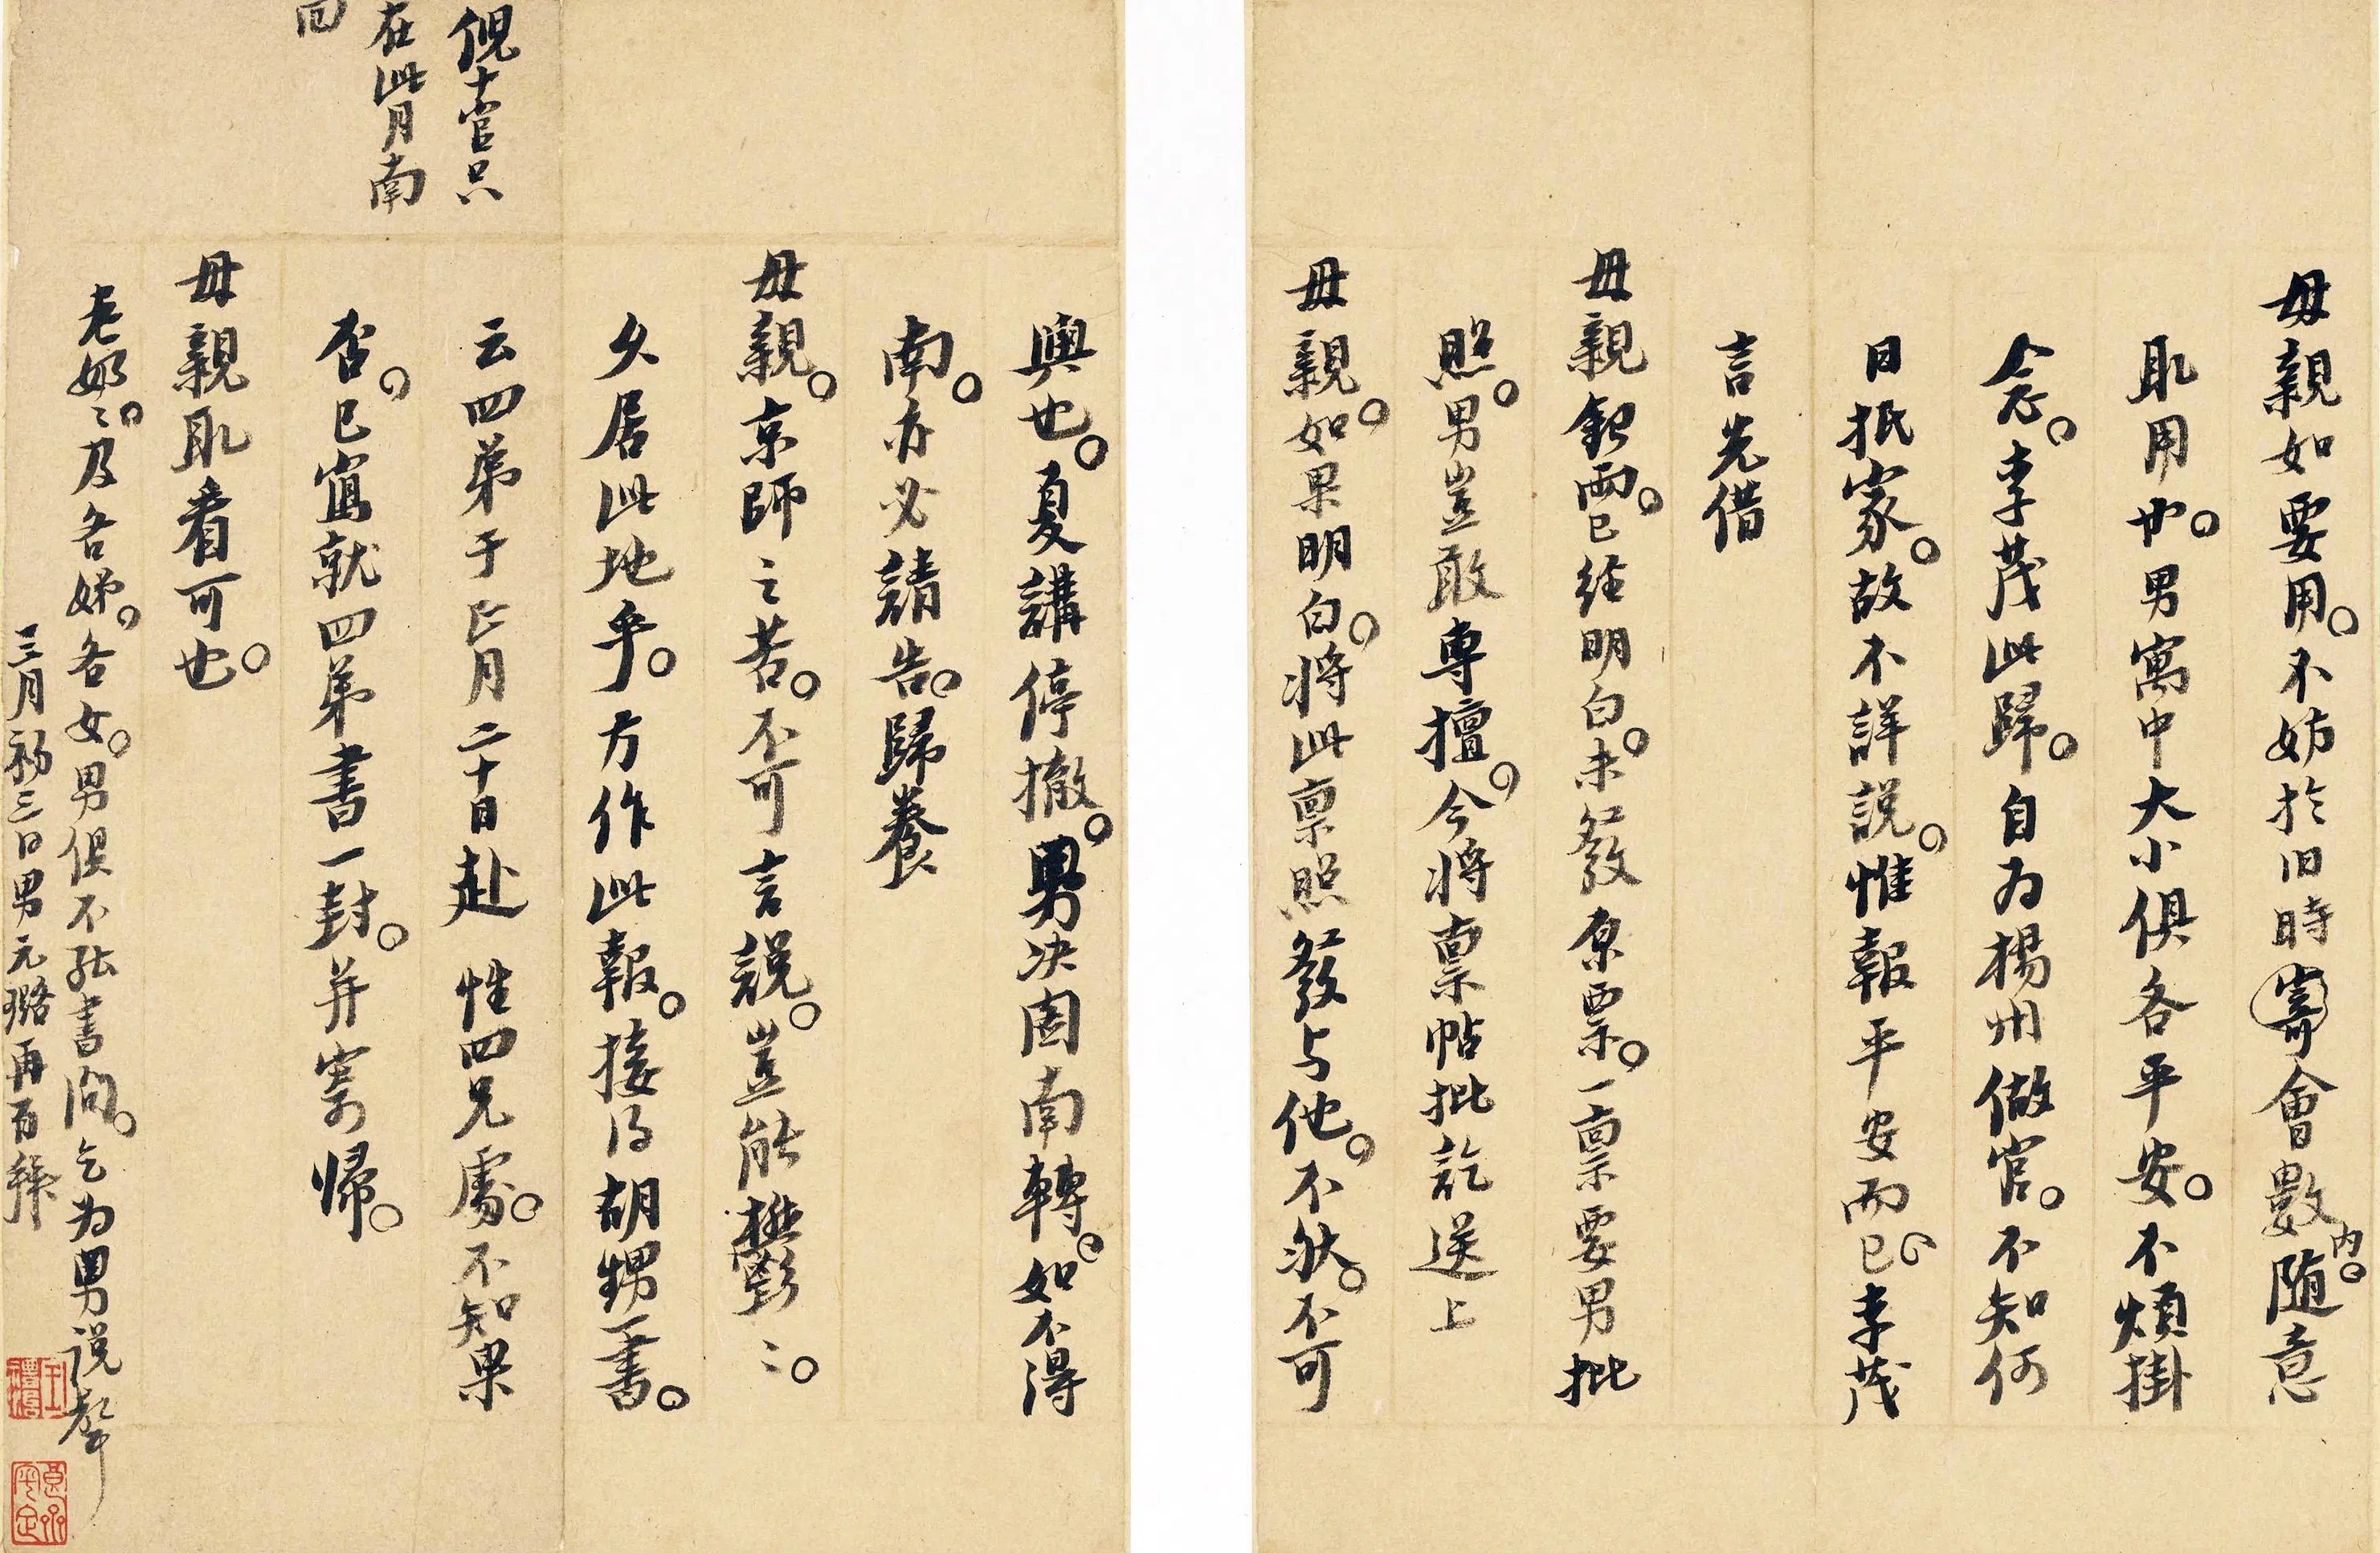 母親如要用不妨於旧時寄會數内随意
取用也男寓中大小俱各平安不煩掛
念李茂此歸自为揚州做官不知何
日抵家故不詳説惟報平安而已李茂
言先借
母親銀両已经明白未發原票一票要男批
照男豈敢專擅今将票帖批訖送上
母親如果明白将此票照發与他不然不可
與也夏講停撤男决圖南轉如不得
南亦必請告歸養
母親京師之苦不可言説豈能鬱〻
久居此地乎方作此報接得胡甥一書
云四弟于正月二十日赴 性四兄處不知果
否已寫就四弟書一封并寄帰
母親取看可也
倪十官只
在此月南
回
老奶〻及各娣各女男俱不能書问乞为男说聲
三月初三日男元璐再百拜